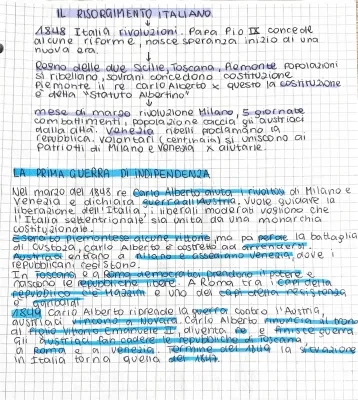 IL RISORGIMENTO ITALIANO
1848 Italia rivoluzioni. Papa Pio IX concede
alcune riforme, nasce speranza inizio di una
nuova era.
Regno delle due Sicilie, Toscana, Piemonte popolazioni
si ribellano, sovrani concedono costituzione
Piemonte il re Carlo Alberto x questo la costituzione
è detta "Statuto Albertino"
mese di marzo rivoluzione Milano, 5 giornate
combattimenti, popolazione caccia gli austriaci
dalla città. Venezia ribelli proclamano la
repubblica. Volontari (centinaia) si uniscono ai
patrioti di Milano e Venezia x aiutare.
LA PRIMA GUERRA DI INDIPENDENZA
Nel marzo del 1848 re Carlo Alberto aiuta i rivoltosi di Milano e
Venezia e dichiara guerra all'Austria, vuole guidare la
liberazione dell'Italia, i liberali moderati vogliono che
l'Italia settentrionale sia unita da una monarchia
costituzionale.
Esercito piemontese alcune vittorie, ma perde la battaglia
di Custoza, Carlo Alberto è costretto ad arrendersi.
Austriaci entrano a Milano e assediano Venezia, dove i
repubblicani resistono.
In Toscana e a Roma democratici prendono il potere e
nascono le repubbliche libere. A Roma tra i capi della
repubblica c'è Mazzini e uno dei capi della resistenza
è Garibaldi
1849 Carlo Alberto riprende la guerra contro l'Austria,
austriaci vincono a Novara. Carlo Alberto rinuncia il trono
al figlio Vittorio Emanuele II, diventa re e finisce guerra
Gli austriaci fan cadere le repubbliche di Toscana,
a Roma e a Venezia. Termine del 1849 la situazione
in Italia torna quella del 1847.